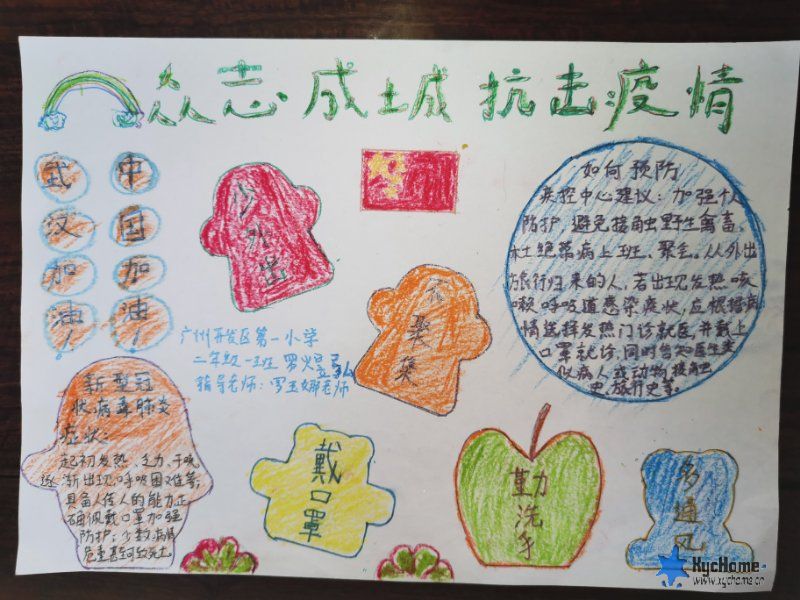 众志成城 抗击疫情
武汉加油!
中国加油!
少外出
如何预防
疾控中心建议:加强个人
防护,避免接触野生禽畜,
杜绝带病上班、聚会。从外出
旅行归来的人,若出现发热咳
嗽呼吸道感染症状,应根据病
情选择发热门诊就医,并戴上
口罩就诊,同时告知医生类
似病人或动物接触
史旅行史等。
不聚集
广州开发区第一小学
二年级一班 罗
指导老师: 玉娜老师
新型冠
状病毒肺炎
症状:
起初发热、乏力、干咳
逐渐出现呼吸困难等;
具备人传人的能力正
确佩戴口罩加强
防护;少数病
危重甚至可致死亡。
戴口罩
勤洗手
多通风
XycHome
www.xychome.cn